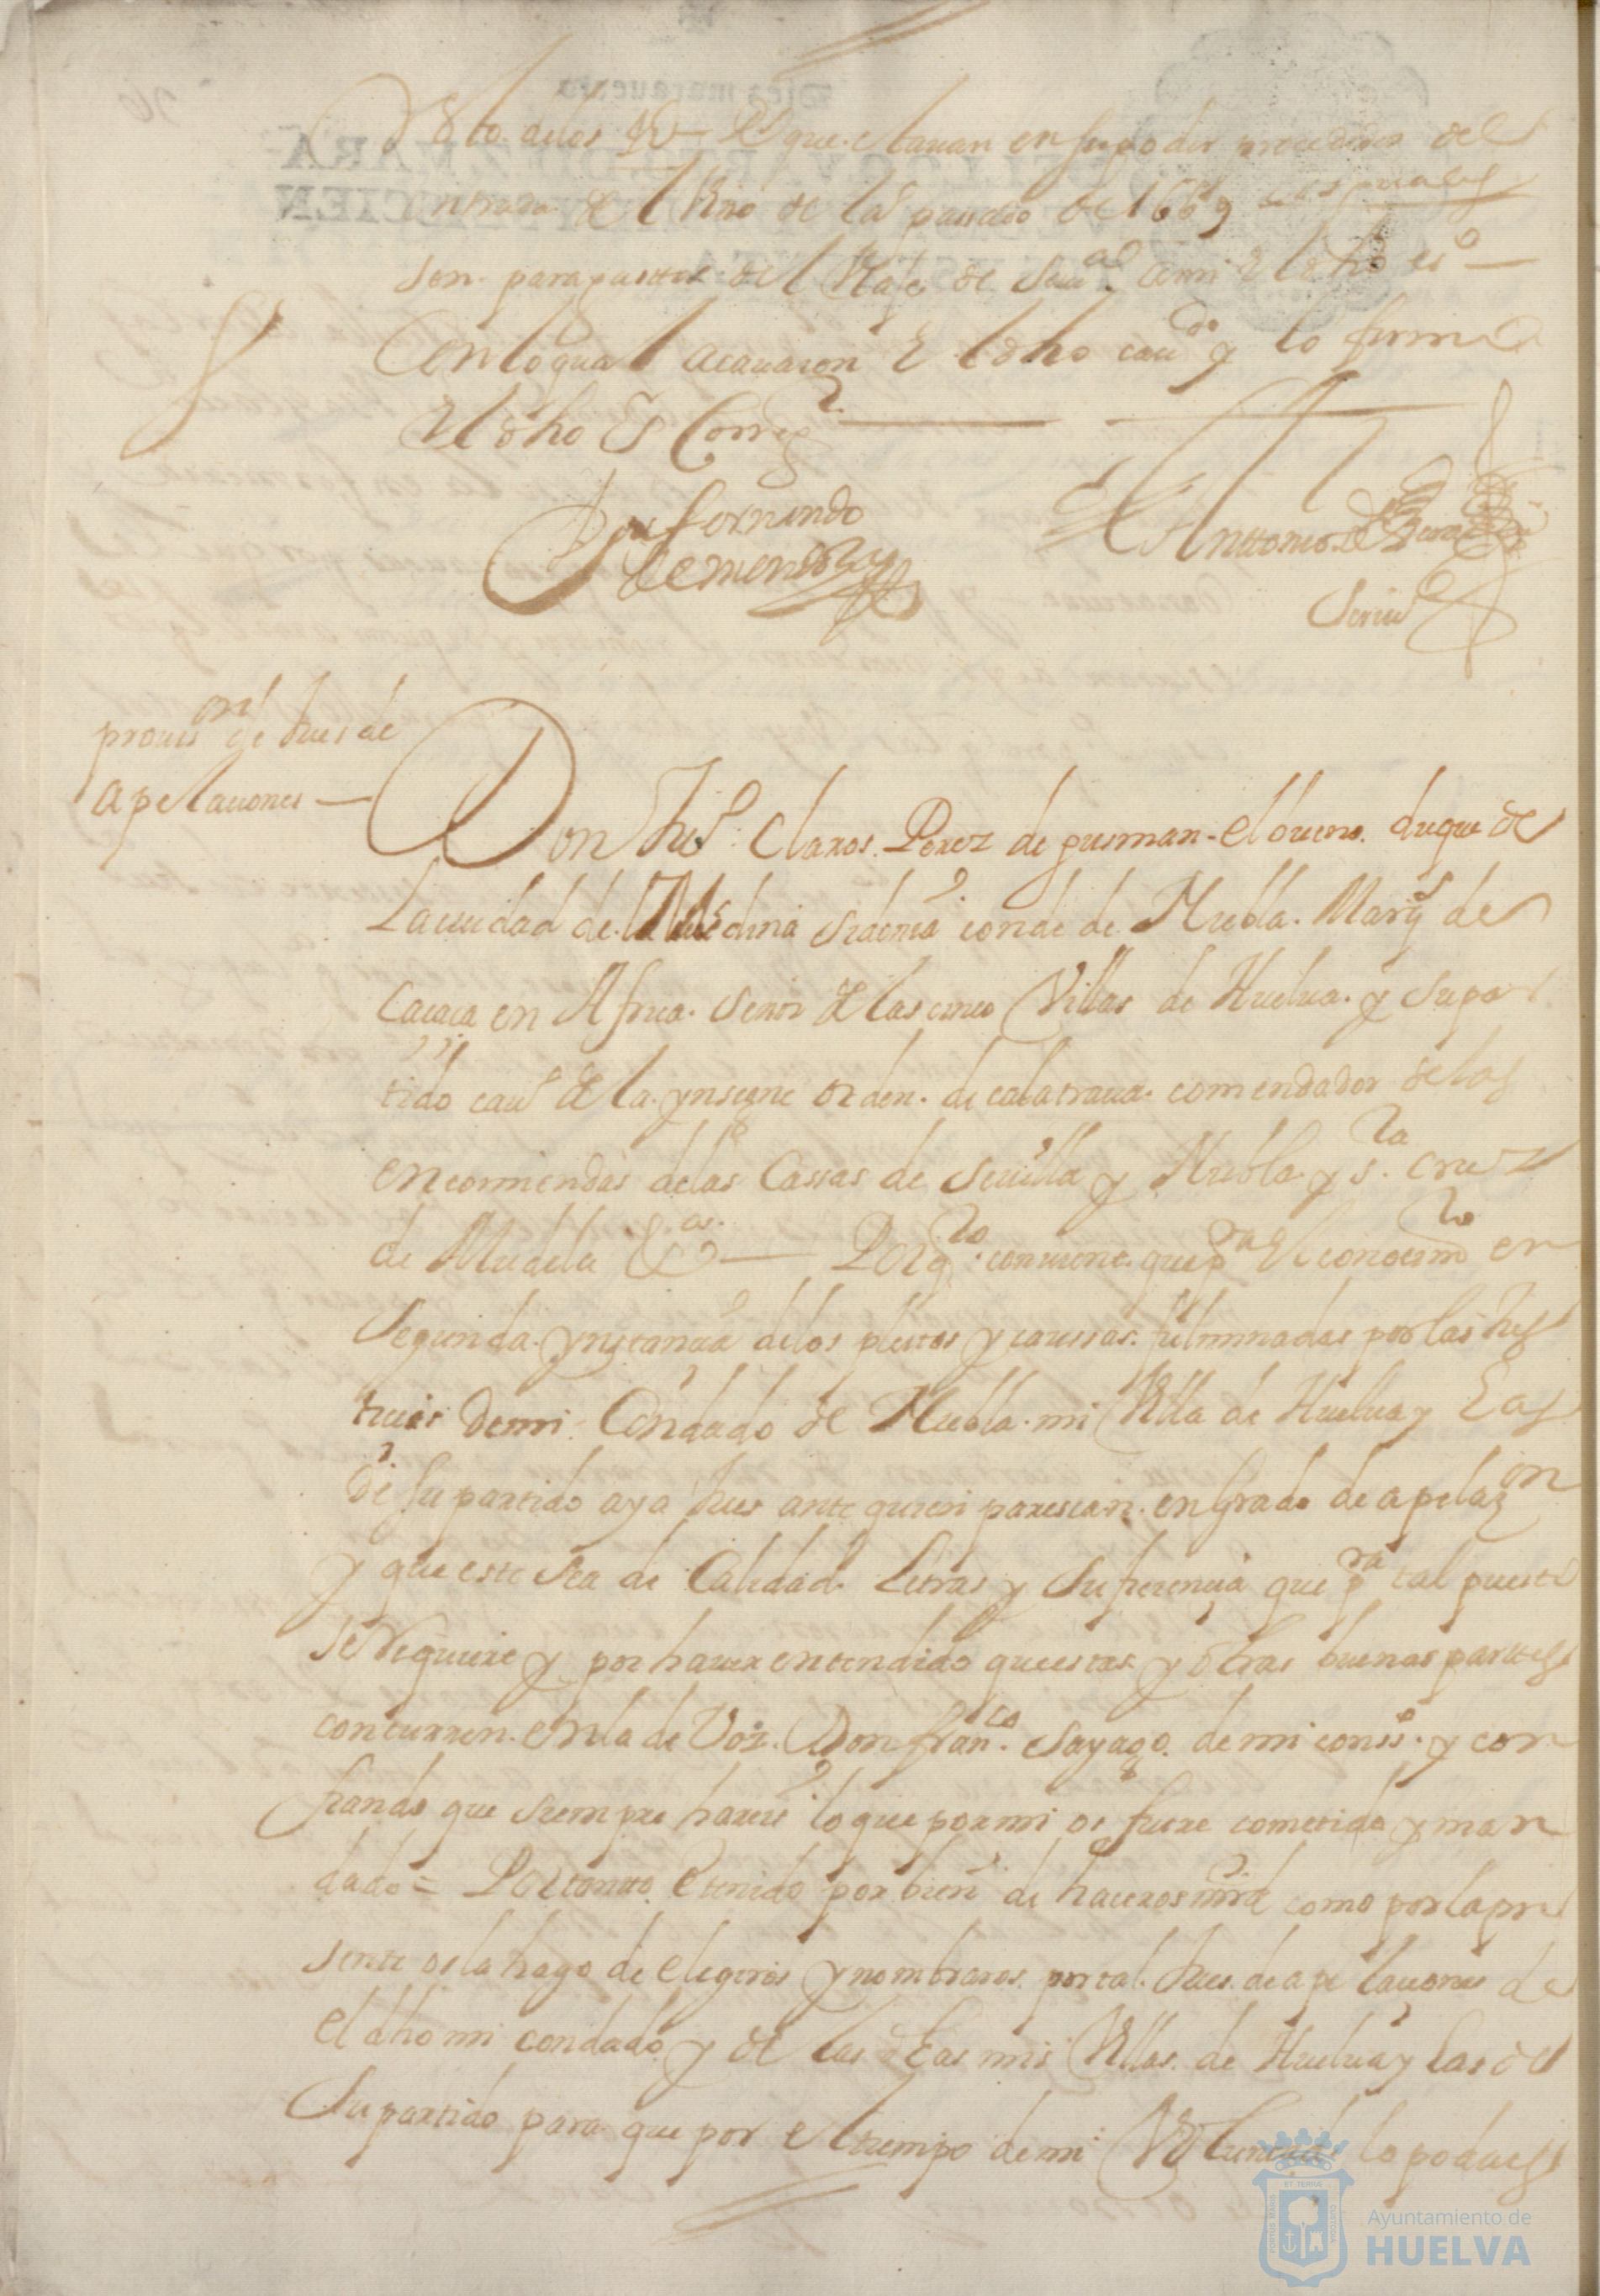 delos que estauan en su poder procedidos del
de el Vino de la passado de 1669
son para del Viaje de a mi el dho es.no
Con lo qual acauaron el dho cau.do y lo firmo
El dho S.r Corre.
Don fernando
de mendoza
Anttonio de
Scriu.o
prouis.on de Jues de
apelaciones —
Don Ju.o Claros Perez de gusman el bueno duque de
La ciudad de Medina Sidonia conde de Niebla Marq.s de
Caçaça en Africa Señor de las cinco Villas de Huelua y su par
tido cau.o de la ynsigne orden de calatraua comendador de las
encomiendas de las Cassas de Seuilla y Niebla y s.ta cruz
de Mudela &.as — Porq.to conuiene que p.ra El conocim.to en
Segunda ynstancia de los pleitos y caussas fulminadas por las Jus
ticias de mi Condado de Niebla mi Villa de Huelua y Las
de su partido aya Jues ante quien parescan en Grado de apelaz.on
y que este sea de Calidad Letras y Suficiencia que p.ra tal puesto
se Requiere y por hauer entendido que estas y otras buenas parttes
concurren en la de Vos Don fran.co Sayago de mi cons.o y con
fiando que siempre hareis lo que por mi os fuere cometido y man
dado = Por tanto E tenido por bien de haceros mrd como por la pre
sente os la hago de elegiros y nombraros por tal Jues de apelaciones de
el dho mi condado y de las dhas mis Villas de Huelua y las de
Su partido para que por el tiempo de mi Voluntad lo podais
Ayuntamiento de
HUELVA